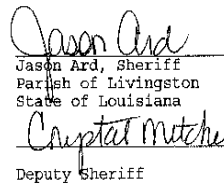 Jason Ard
Jason Ard, Sheriff
Parish of Livingston
State of Louisiana
Crystal
Deputy Sheriff